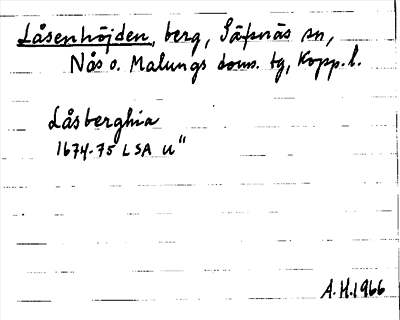 Låsenhöjden, berg, Säfsnäs sn,
Nås o. Malungs doms. tg, Kopp. l.
Låsberghia
1674-75 LSA u"
A.H. 1966